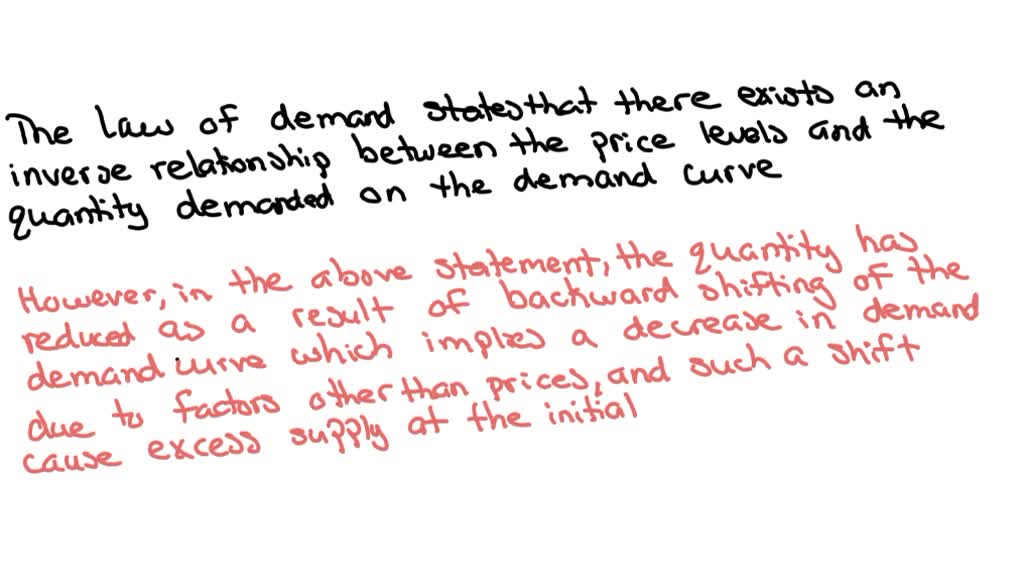 The law of demand states that there exists an
inverse relationship between the price levels and the
quantity demanded on the demand curve
However, in the above statement, the quantity has
reduced as a result of backward shifting of the
demand curve which implies a decrease in demand
due to factors other than prices, and such a shift
cause excess supply at the initial